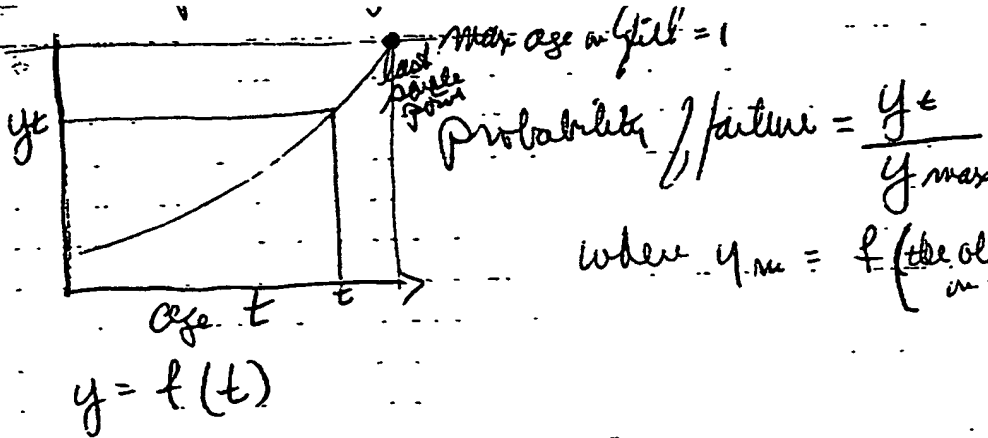 max age in field = 1
last
point
yt
probability of failure = yt / y max
where ym = f (the
in
age t
t
y = f(t)